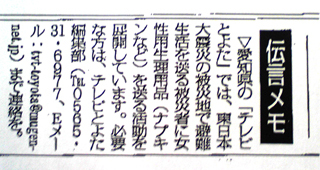 伝言メモ
▽愛知県の「テレビ
とよた」では、東日本
大震災の被災地で避難
生活を送る被災者に女
性用生理用品(ナプキ
ンなど)を送る活動を
展開しています。必要
な方は、テレビとよた
編集部(℡0565・
31・6297、Eメー
ル:
net.jp)まで連絡を。